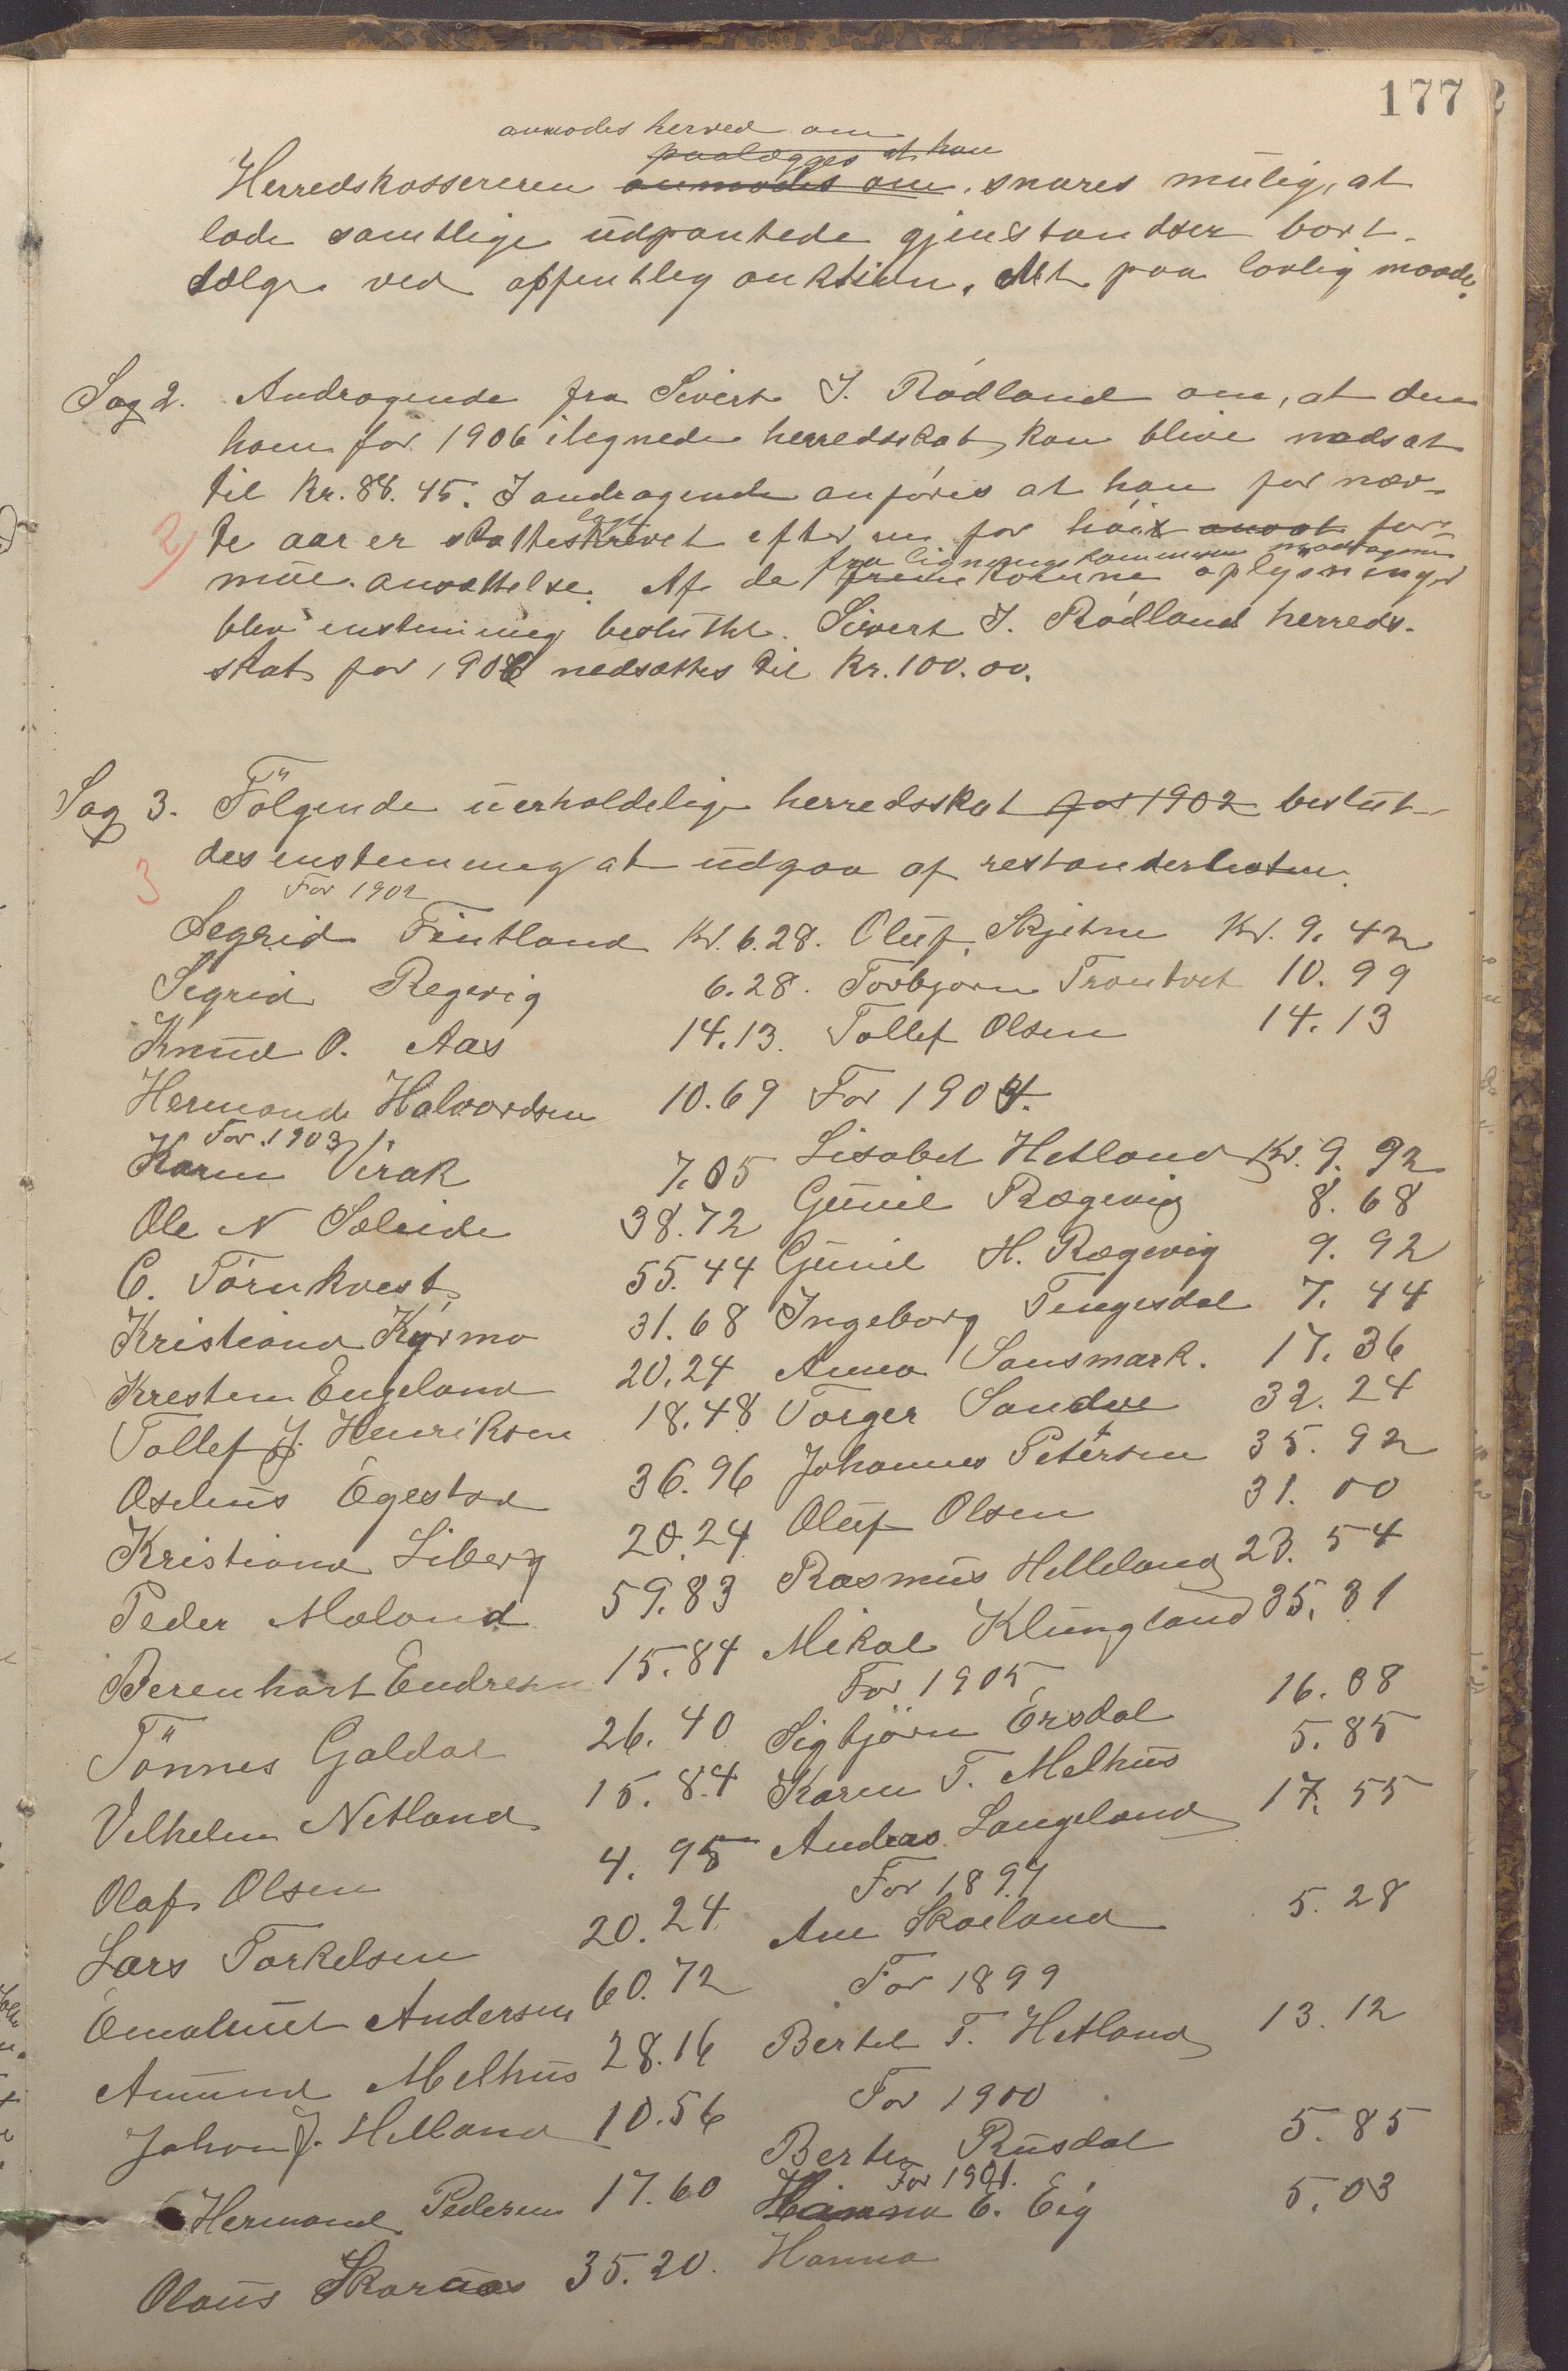 177
anmodes herved om
paalægges at han
Herredskassereren anmodes om, snares mulig, at
lade samtlige udpantede gjenstandser bort-
sælge ved offentlig auktion. Alt paa lovlig maade.
Sag 2. Andragende fra Sivert J. Rödland om, at den
ham for 1906 ilignede herredsskat kan blive nedsat
til Kr. 88.45. I andragende anføres at han for næv-
2) te aar er skatteskrevet efter en for høi ansat for-
fra ligningskommissionen modtagne
mue ansættelse. Af de fremkomne oplysninger
blev enstemmig besluttet. Sivert J. Rödland herreds-
skat for 1906 nedsættes til Kr. 100.00.
Sag 3. Fölgende uerholdelige herredsskat for 1902 beslut-
3 des enstemmig at udgaa af restanselisten.
For 1902
Segrid Fintland Kr. 6.28. Oluf Skjetne Kr. 9.42
Segrid Regevig 6.28. Torbjørn Trontvet 10.99
Knud O. Aas 14.13. Tollef Olsen 14.13
Hermand Halvordsen 10.69 For 1904.
For 1903
Karen Virak 7.05 Lisabet Hetland Kr. 9.92
Ole N Søleide 38.72 Gunil Rægevig 8.68
C. Törnkvest 55.44 Gunil H. Rægevig 9.92
Kristiand Kyrmo 31.68 Ingeborg Tengesdal 7.44
Kresten Engeland 20.24 Anna Sansmark. 17.36
Tollef J. Henriksen 18.48 Torger Sandve 32.24
Aselius Egestad 36.96 Johannes Petersen 35.92
Kristiand Liberg 20.24 Oluf Olsen 31.00
Peder Maland 59.83 Rasmus Helleland 23.54
Berenhart Endresen 15.84 Mikal Klungland 35.31
For 1905
Tönnes Galdal 26.40 Sigbjörn Ersdal 16.08
Vilhelm Netland 15.84 Karen T. Melhus 5.85
Olaf Olsen 4.95 Andreas Langeland 17.55
For 1897
Lars Torkelsen 20.24 Ane Skaeland 5.28
Emaluet Andersen 60.72 For 1899
Amund Melhus 28.16 Bertel T. Hetland 13.12
Johan J. Helland 10.56 For 1900
Berte Rusdal 5.85
For 1901.
Hermand Pedersen 17.60 Hanna E. Eig 5.03
Olaus Skaraas 35.20. Hanna